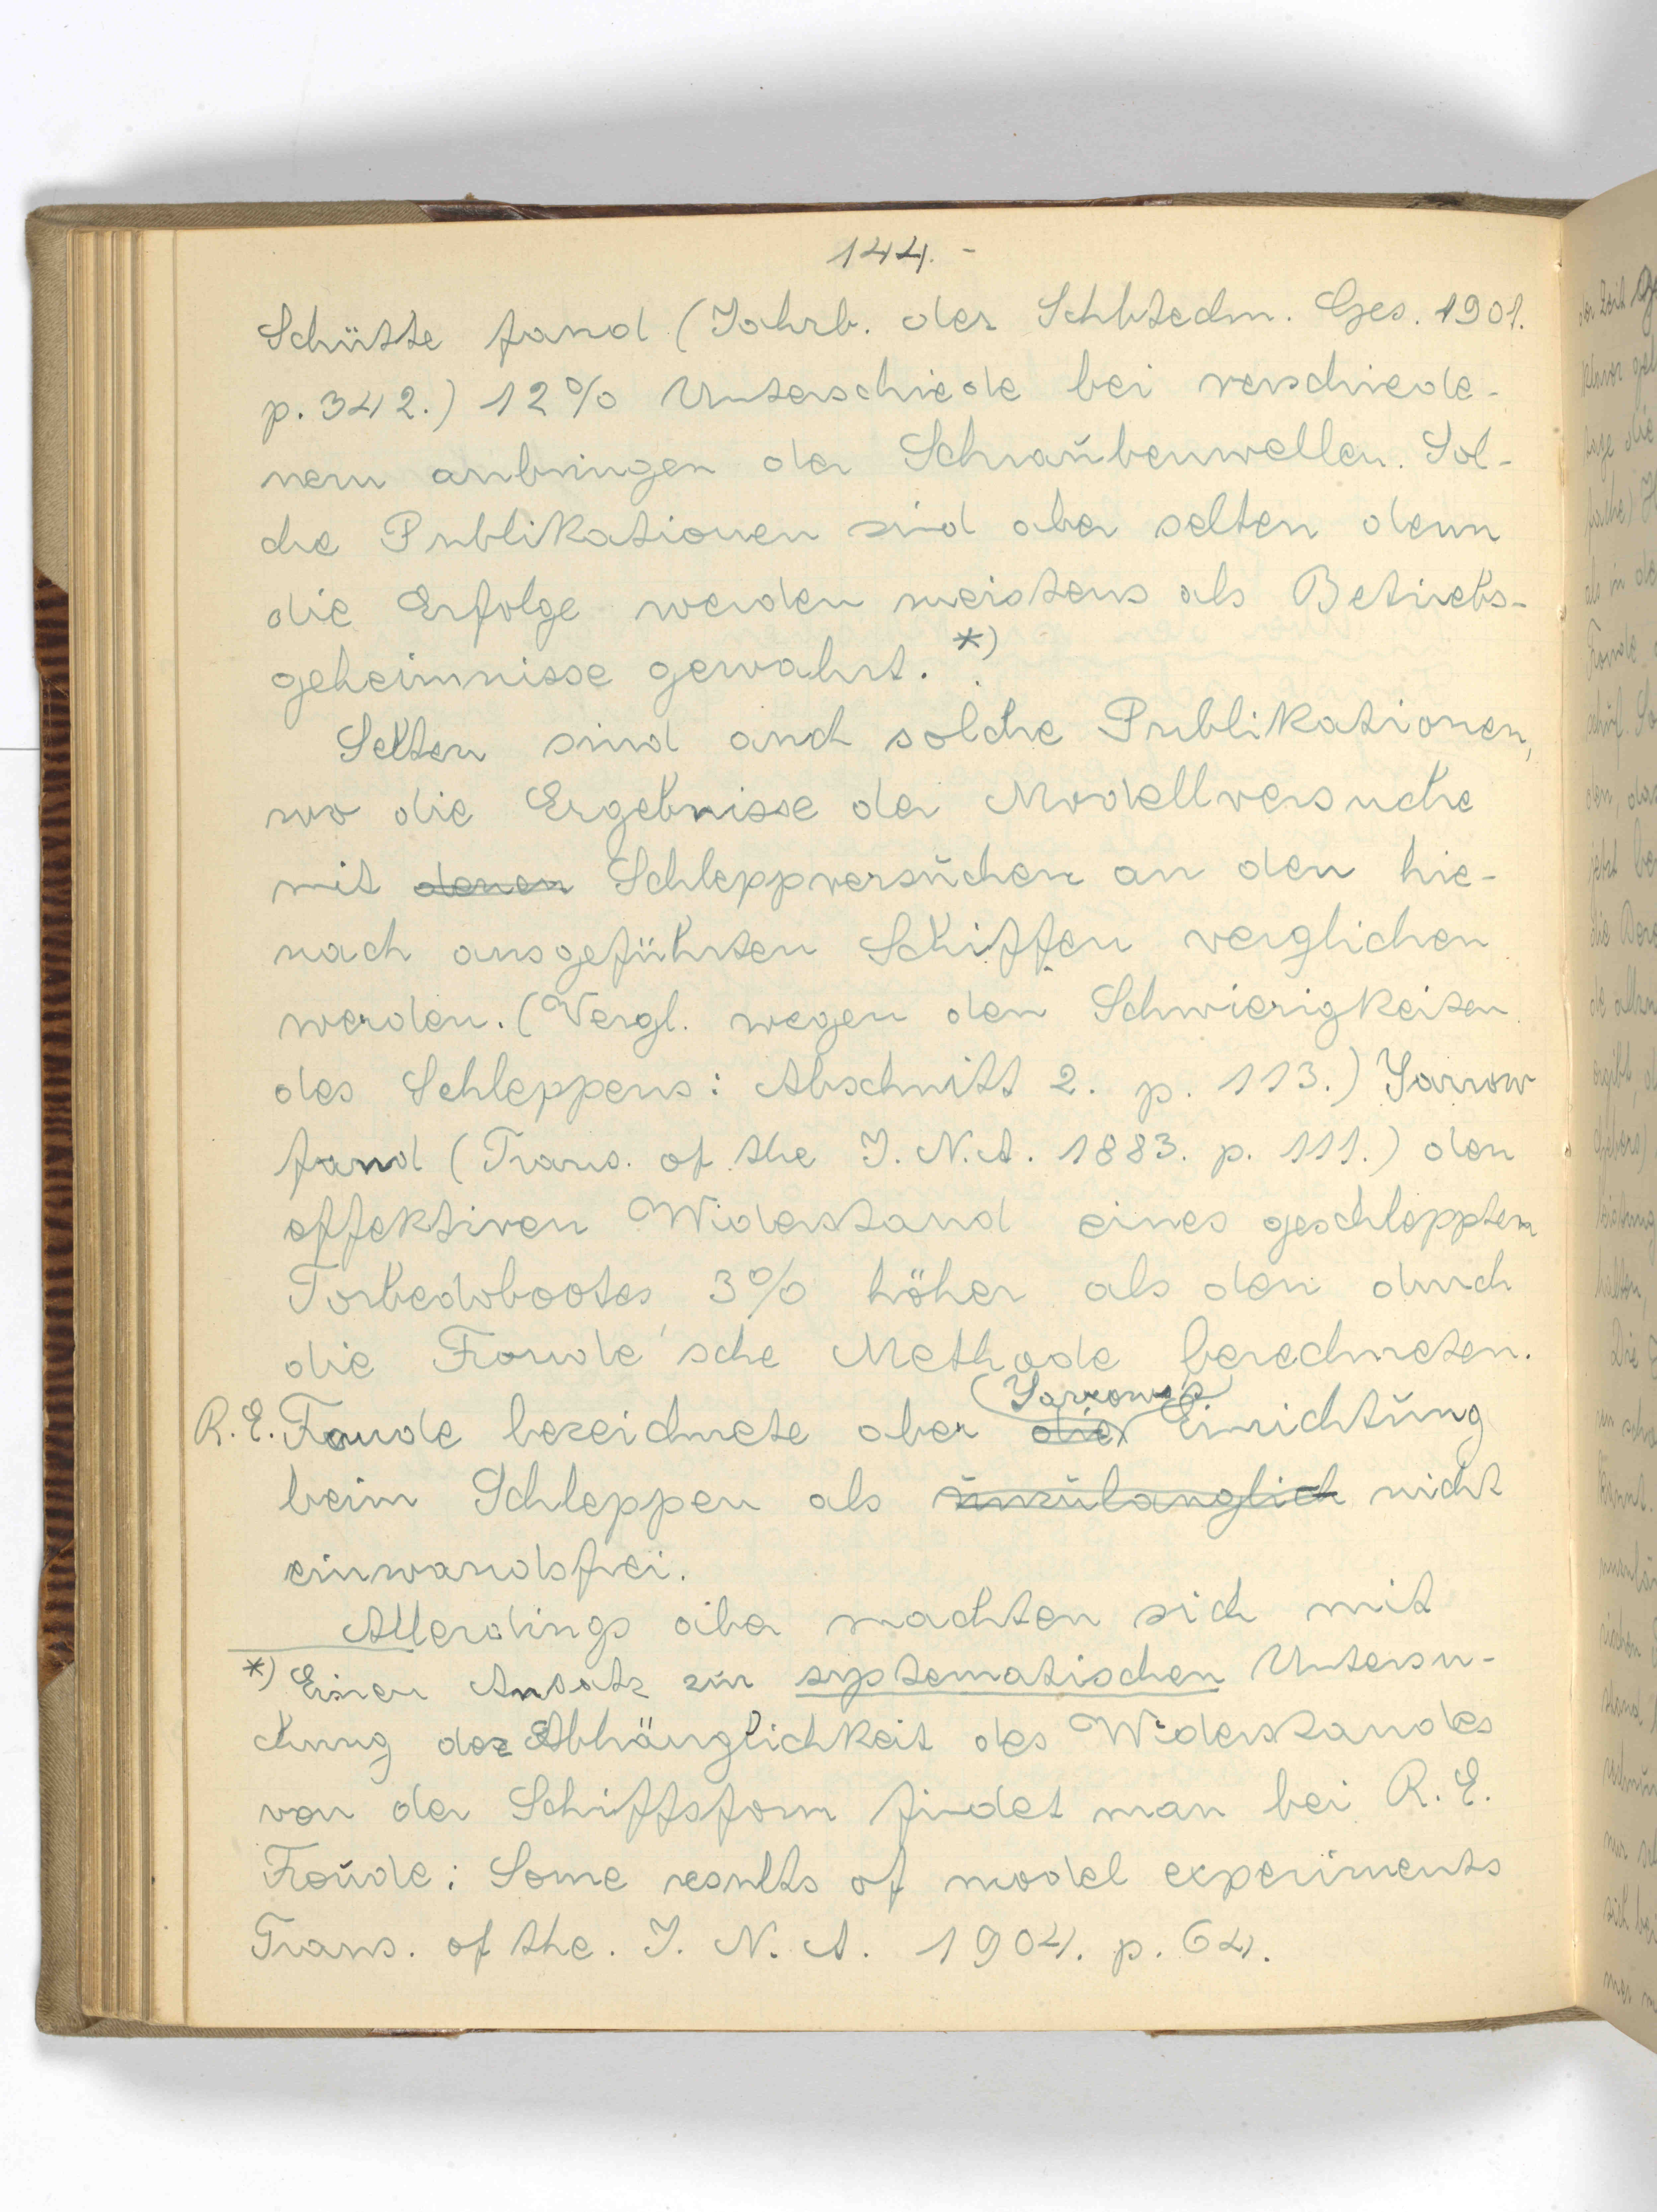 144. -
Schütte fand (Jahrb. der Schbtechn. Ges. 1901.
p. 342.) 12% Unterschiede bei verschiede-
nem anbringen der Schraubenwellen. Sol-
che Publikationen sind aber selten denn
die Erfolge werden meistens als Betriebs-
geheimnisse gewahrt. *)
Selten sind auch solche Publikationen,
wo die Ergebnisse der Modellversuche
mit denen Schleppversuchen an den hie-
nach ausgeführten Schiffen verglichen
werden. (Vergl. wegen den Schwierigkeiten
des Schleppens: Abschnitt 2. p. 113.) Yarrow
fand (Trans. of the I. N. A. 1883. p. 111.) den
effektiven Widerstand eines geschleppten
Torbedobootes 3% höher als den durch
die Froude'sche Methode berechneten.
R. E. Froude bezeichnete aber die Yarrow's Einrichtung
beim Schleppen als unzulänglich nicht
einwandsfrei.
Allerdings aber machten sich mit
*) Einen Ansatz zur systematischen Untersu-
chung der Abhänglichkeit des Widerstandes
von der Schiffsform findet man bei R. E.
Froude: Some results of model experiments
Trans. of the. I. N. A. 1904. p. 64.